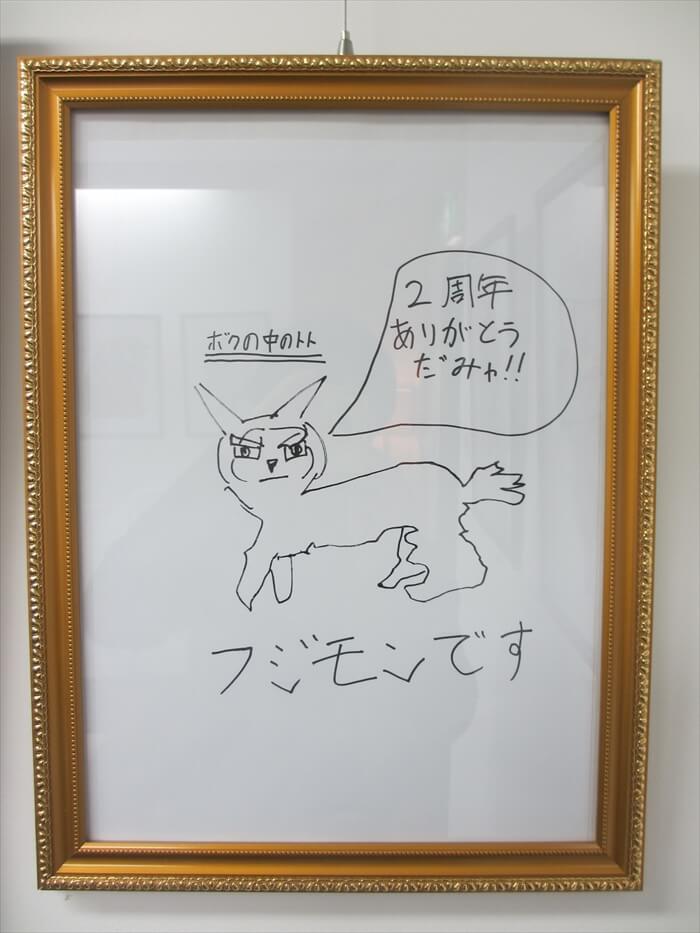 2周年
ありがとう
だみゃ!!
ボクの中のトト
フジモンです